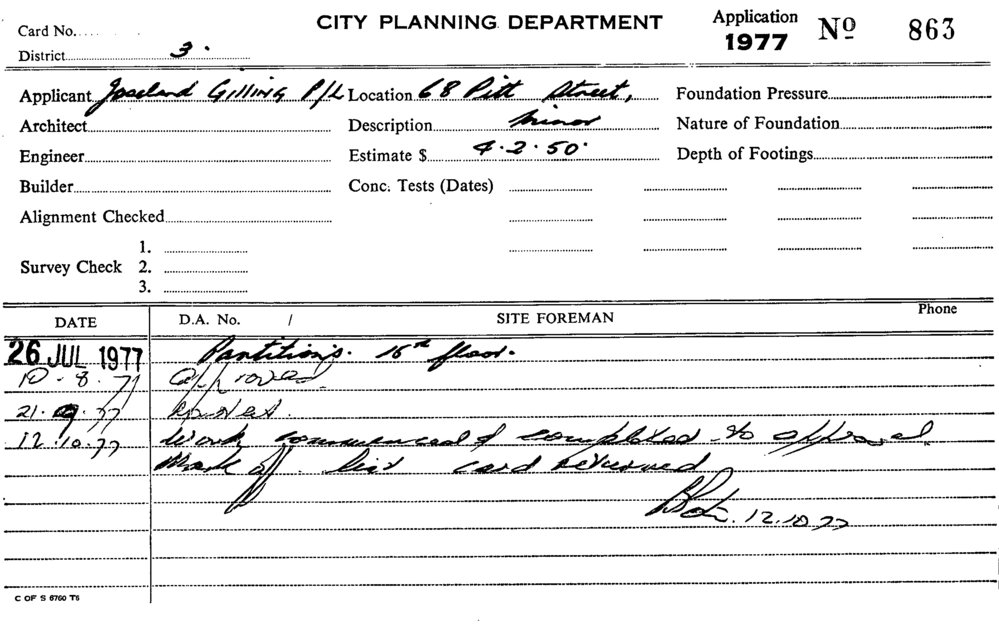 CITY PLANNING DEPARTMENT
Application 1977 Nº 863
Card No.
District 3.
Applicant Joseland Gilling P/L Location 68 Pitt Street, Foundation Pressure
Architect Description minor Nature of Foundation
Engineer Estimate $ 4.2.50. Depth of Footings
Builder Conc. Tests (Dates)
Alignment Checked
1.
Survey Check 2.
3.
DATE D.A. No. / SITE FOREMAN Phone
26 JUL 1977 Partitions. 16th floor.
10-8.77 approved
21.9.77
12.10.77 Work commenced & completed to approval
Mark off list card returned
12.10.77
C OF S 6760 T6